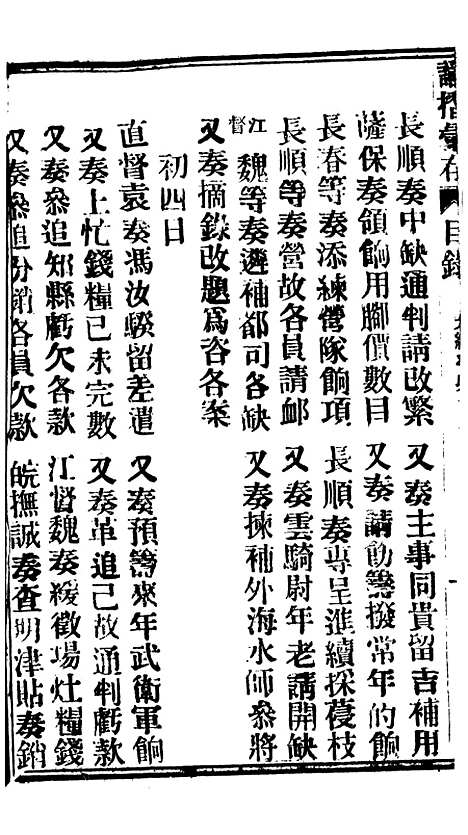 諭摺彙存 目錄
長順奏中缺通判請改繁 又奏主事同貴留吉補用
薩保奏領餉用腳價數目 又奏請飭籌撥常年的餉
長春等奏添練營隊餉項 長順奏專呈進續採葠枝
長順等奏營故各員請卹 又奏雲騎尉年老請開缺
江督魏等奏遴補都司各缺 又奏揀補外海水師叅將
又奏摘錄改題爲咨各案
初四日
直督袁奏馮汝騤留差遣 又奏預籌來年武衛軍餉
又奏上忙錢糧已未完數 又奏革追已故通判虧款
又奏叅追知縣虧欠各款 江督魏奏緩徵塲灶糧錢
又奏叅追分銷各員欠款 皖撫誠奏查明津貼奏銷